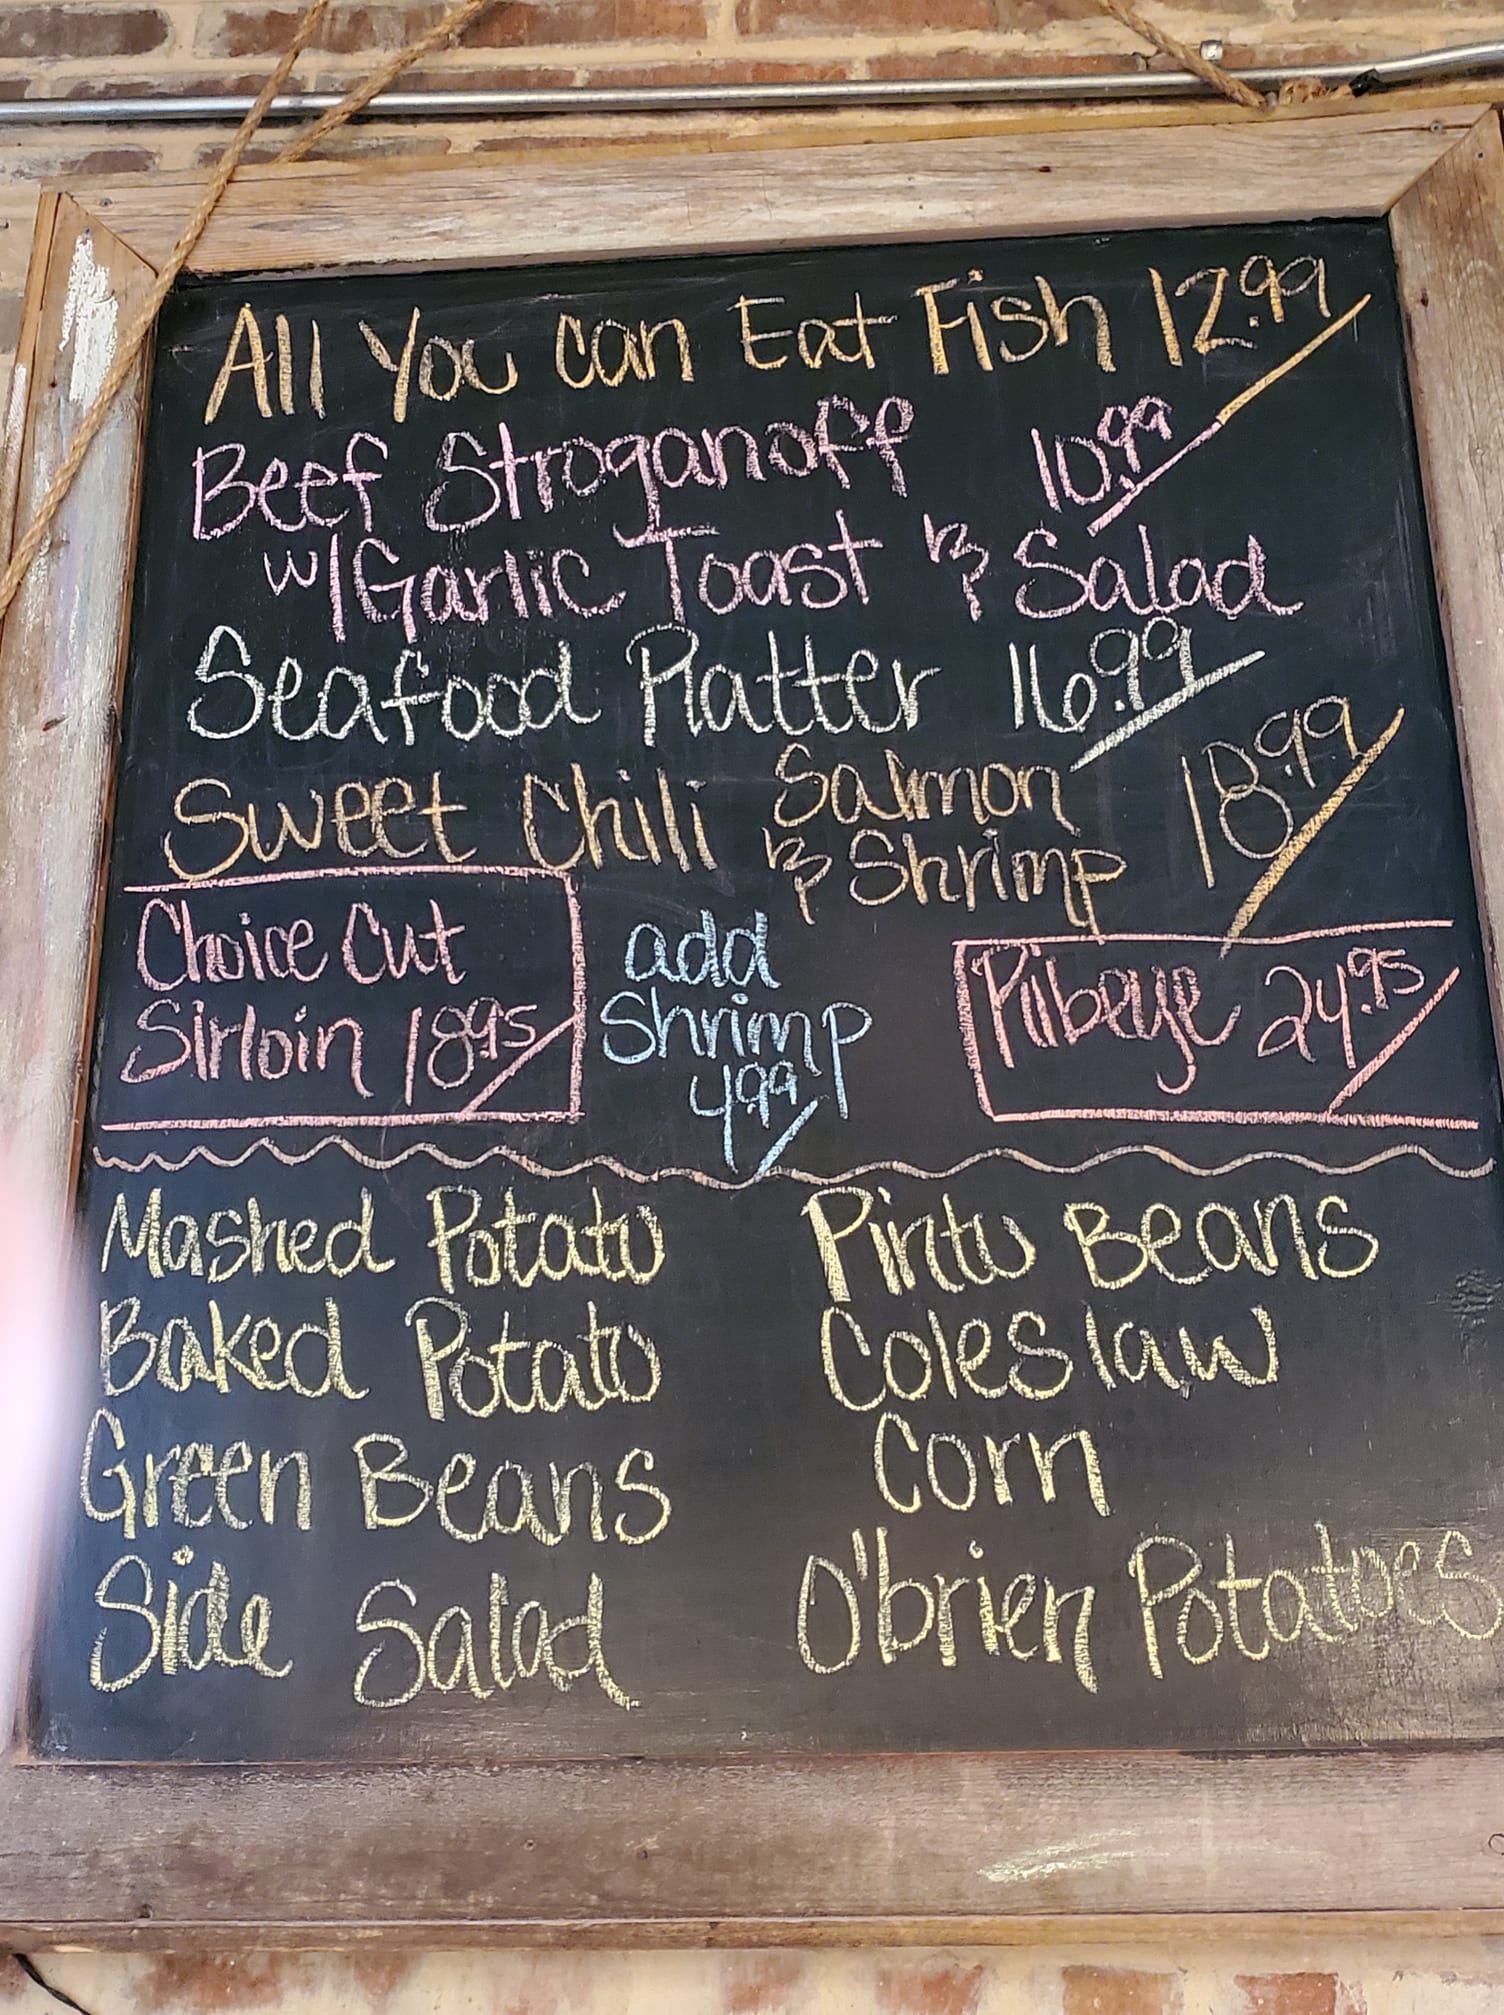 All You Can Eat Fish 12.99
Beef Stroganoff 10.99
w/ Garlic Toast & Salad
Seafood Platter 16.99
Sweet Chili Salmon
& Shrimp 18.99
Choice Cut
Sirloin 18.95
add
Shrimp
4.99
Ribeye 24.95
Mashed Potato
Baked Potato
Green Beans
Side Salad
Pinto Beans
Coleslaw
Corn
O'brien Potatoes